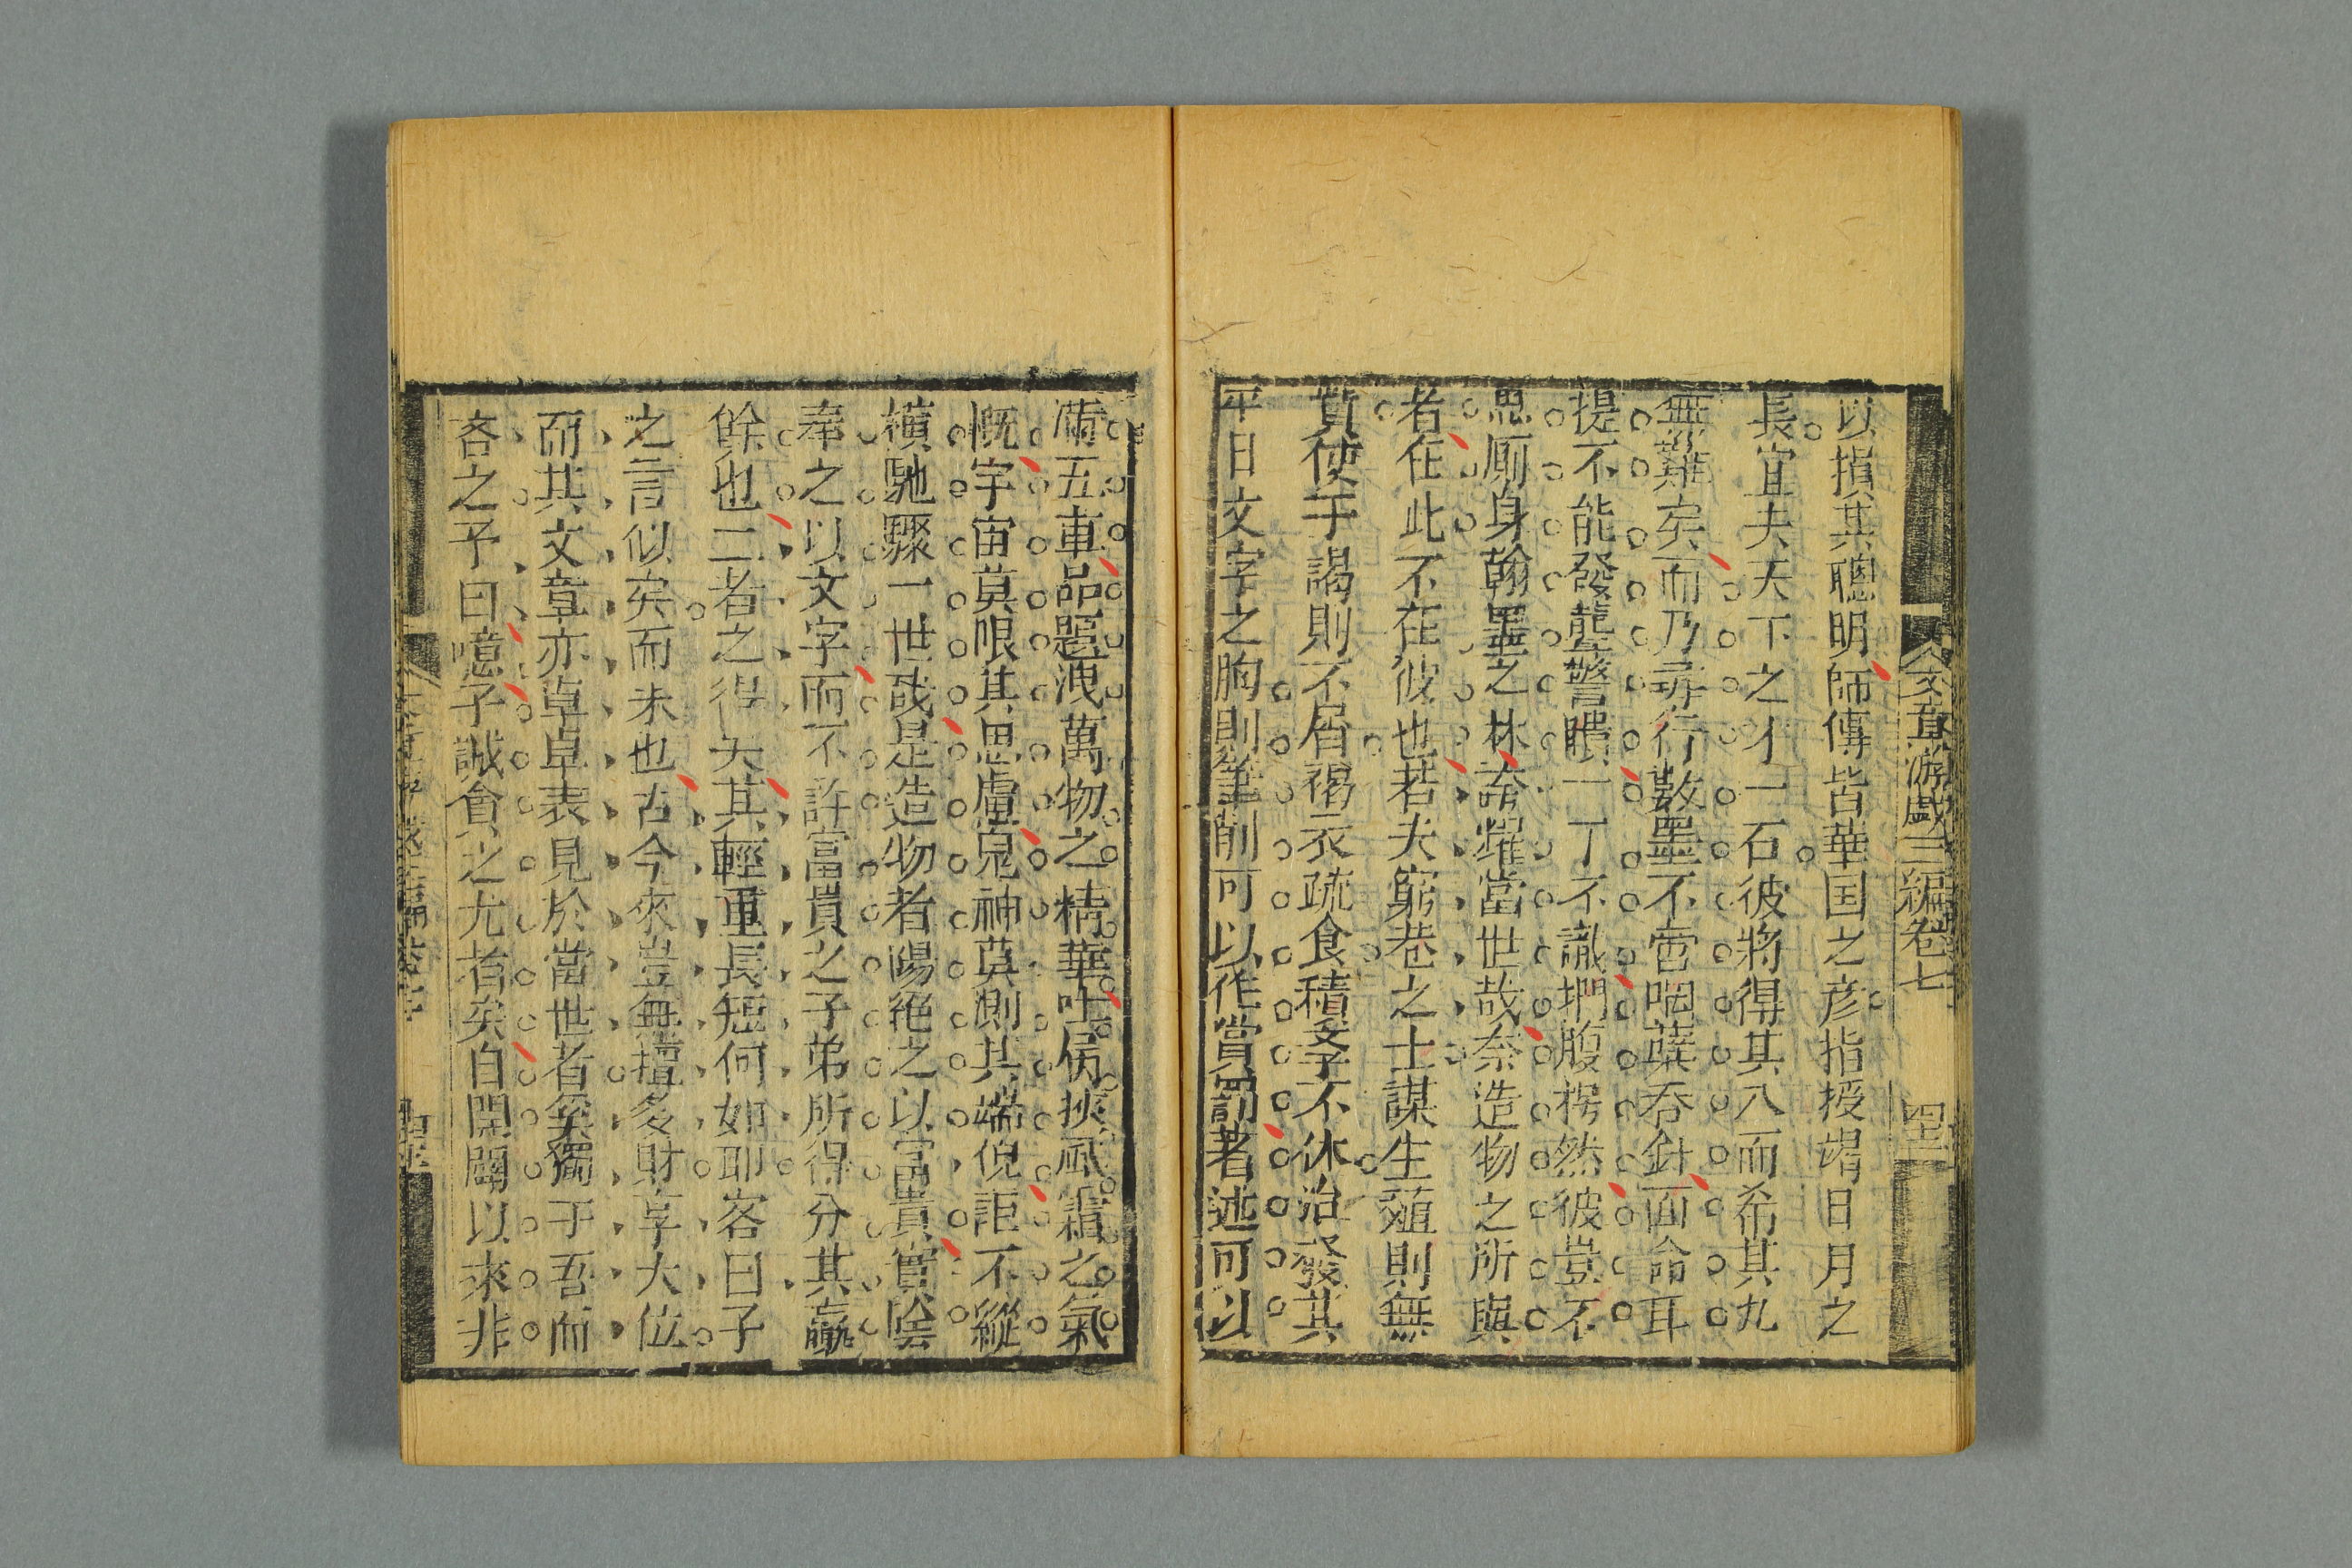 文章游戲三編卷七
四三
以損其聰明師傅皆華国之彦指授竭日月之
長宜夫天下之才一石彼將得其八而希其九
無難矣而乃尋行數墨不啻咽蘗吞針面命耳
提不能發聾警聵一丁不識捫腹枵然彼豈不
思厠身翰墨之林誇耀當世哉奈造物之所與
者在此不在彼也若夫窮巷之士謀生殖則無
貲使干謁則不屑褐衣疏食積委不休治發其
平日文字之胸則筆削可以作賞罰著述可以
備五車品題洩萬物之精華吐屬挾風霜之氣
慨宇宙莫限其思慮鬼神莫測其端倪詎不縱
横馳驟一世哉是造物者陽絕之以富貴實陰
奉之以文字而不許富貴之子弟所得分其贏
餘也二者之得失其輕重長短何如耶客曰子
之言似矣而未也古今來豈無擅多財享大位
而其文章亦卓卓表見於當世者奚獨于吾而
吝之予曰噫子誠貪之尤者矣自開闢以來非